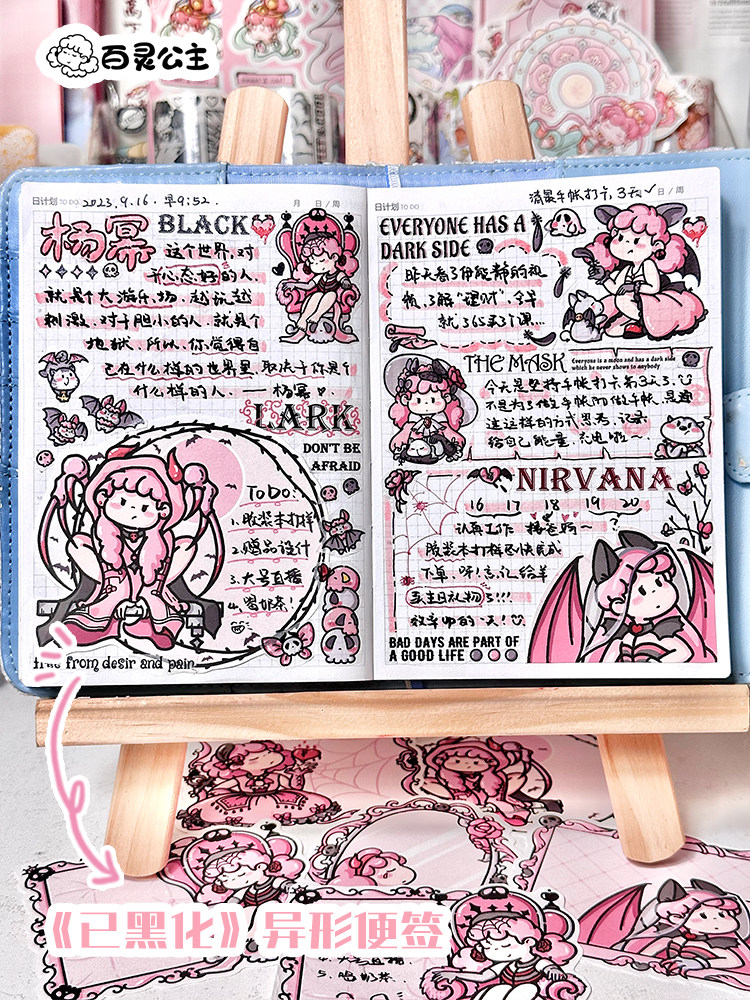 百灵公主
日计划 TO DO
2023.9.16. 早9:52.
月 日/周
杨幂
BLACK
这个世界,对
于心态好的人
就是个大游乐场,越玩越
刺激,对于胆小的人,就是个
地狱,所以,你觉得自
己在什么样的世界里,取决于你是个
什么样的人. — 杨幂
LARK
DON'T BE
AFRAID
ToDo:
1.
2.赠品设计
3.大号直播
4.喝奶茶!
from desir and pain
日计划 TO DO
清晨手帐打卡,3天✓
日/周
EVERYONE HAS A
DARK SIDE
昨天看了伊能静的视
频,了解"硬财",今年
就365买了个课...
THE MASK
Everyone is a moon and has a dark side
which he never shows to anybody
今天是坚持手帐打卡第3天了.
不是为了做手帐而做手帐,是通
过这样的方式思考,记录
给自己能量,充电啦~.
NIRVANA
16 17 18 19 20
认真工作
打样尽快完成
下单,呀!忘记给羊
买生日礼物了!!!
的一天!
BAD DAYS ARE PART OF
A GOOD LIFE
《已黑化》异形便签
4.大号直播
5.喝奶茶.